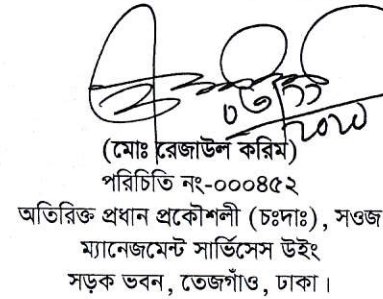 (মোঃ রেজাউল করিম)
পরিচিতি নং-০০০৪৫২
অতিরিক্ত প্রধান প্রকৌশলী (চঃদাঃ), সওজ
ম্যানেজমেন্ট সার্ভিসেস উইং
সড়ক ভবন, তেজগাঁও, ঢাকা।